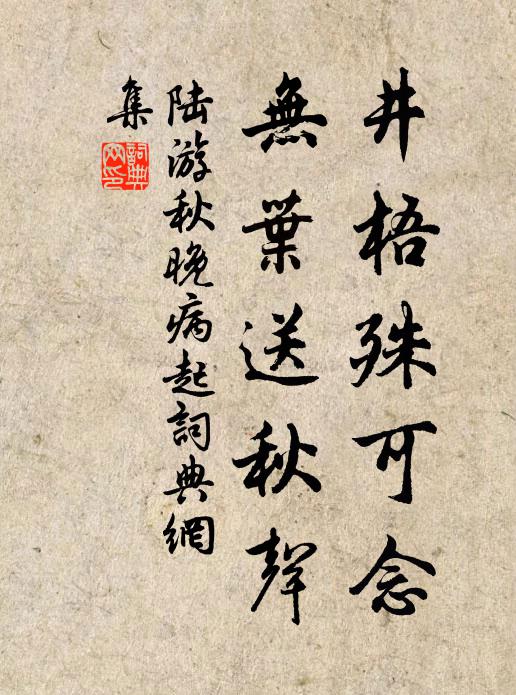 井梧殊可念
無葉送秋聲
陸游秋晚病起詞典網
集
詞典網印